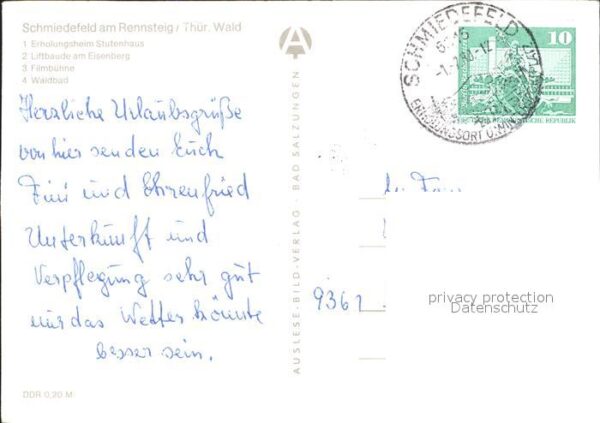 Schmiedefeld am Rennsteig / Thür. Wald
1 Erholungsheim Stutenhaus
2 Liftbaude am Eisenberg
3 Filmbühne
4 Waldbad
Herzliche Urlaubsgrüße
von hier senden Euch
Fini und Ehrenfried
Unterkunft und
Verpflegung sehr gut
nur das Wetter könnte
besser sein.
DDR 0,20 M
AUSLESE-BILD-VERLAG · BAD SALZUNGEN
SCHMIEDEFELD
10
DEUTSCHE DEMOKRATISCHE REPUBLIK
9361
privacy protection
Datenschutz